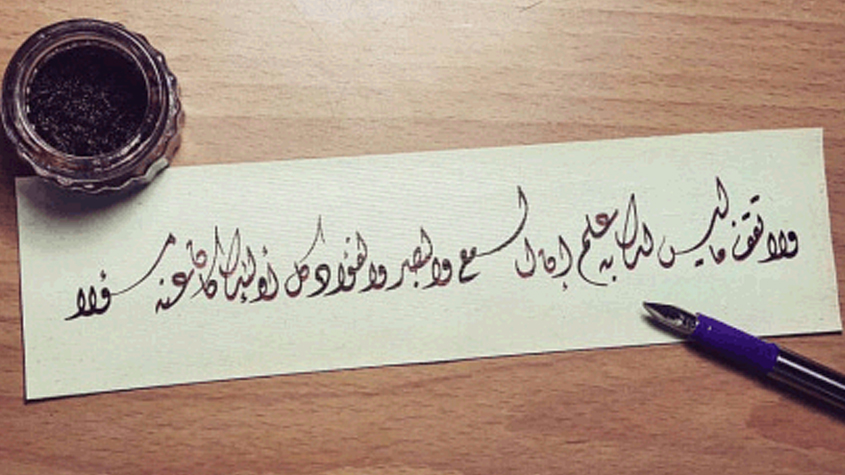 ولا تقف ما ليس لك به علم إن السمع والبصر والفؤاد كل أولئك كان عنه مسؤلا